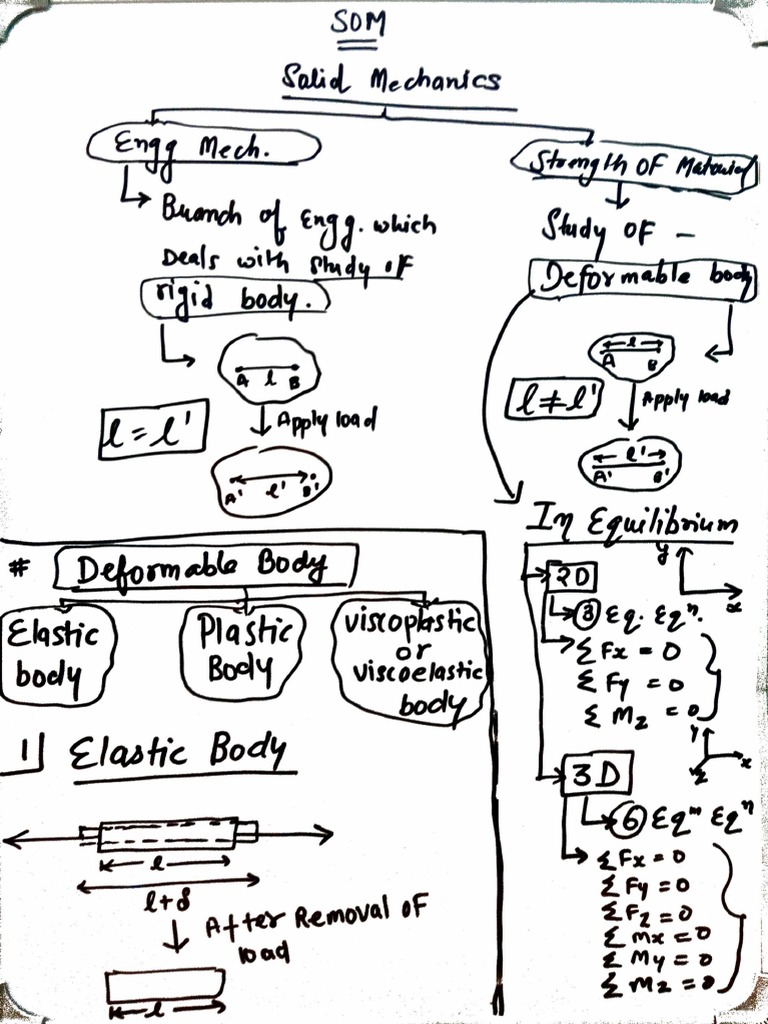 SOM
Solid Mechanics
Engg Mech.
Branch of Engg. which
Deals with study of
rigid body.
A l B
Apply load
l = l'
A' l' B'
Strength OF Material
Study OF -
Deformable body
l
A B
l ≠ l'
Apply load
l'
A' B'
In Equilibrium
2D
y
x
3 Eq. Eqⁿ.
Σ Fx = 0
Σ Fy = 0
Σ Mz = 0
3D
y
x
z
6 Eqᵐ Eqⁿ
Σ Fx = 0
Σ Fy = 0
Σ Fz = 0
Σ Mx = 0
Σ My = 0
Σ Mz = 0
# Deformable Body
Elastic
body
Plastic
Body
viscoplastic
or
viscoelastic
body
1] Elastic Body
l
l+δ
After Removal OF
load
l